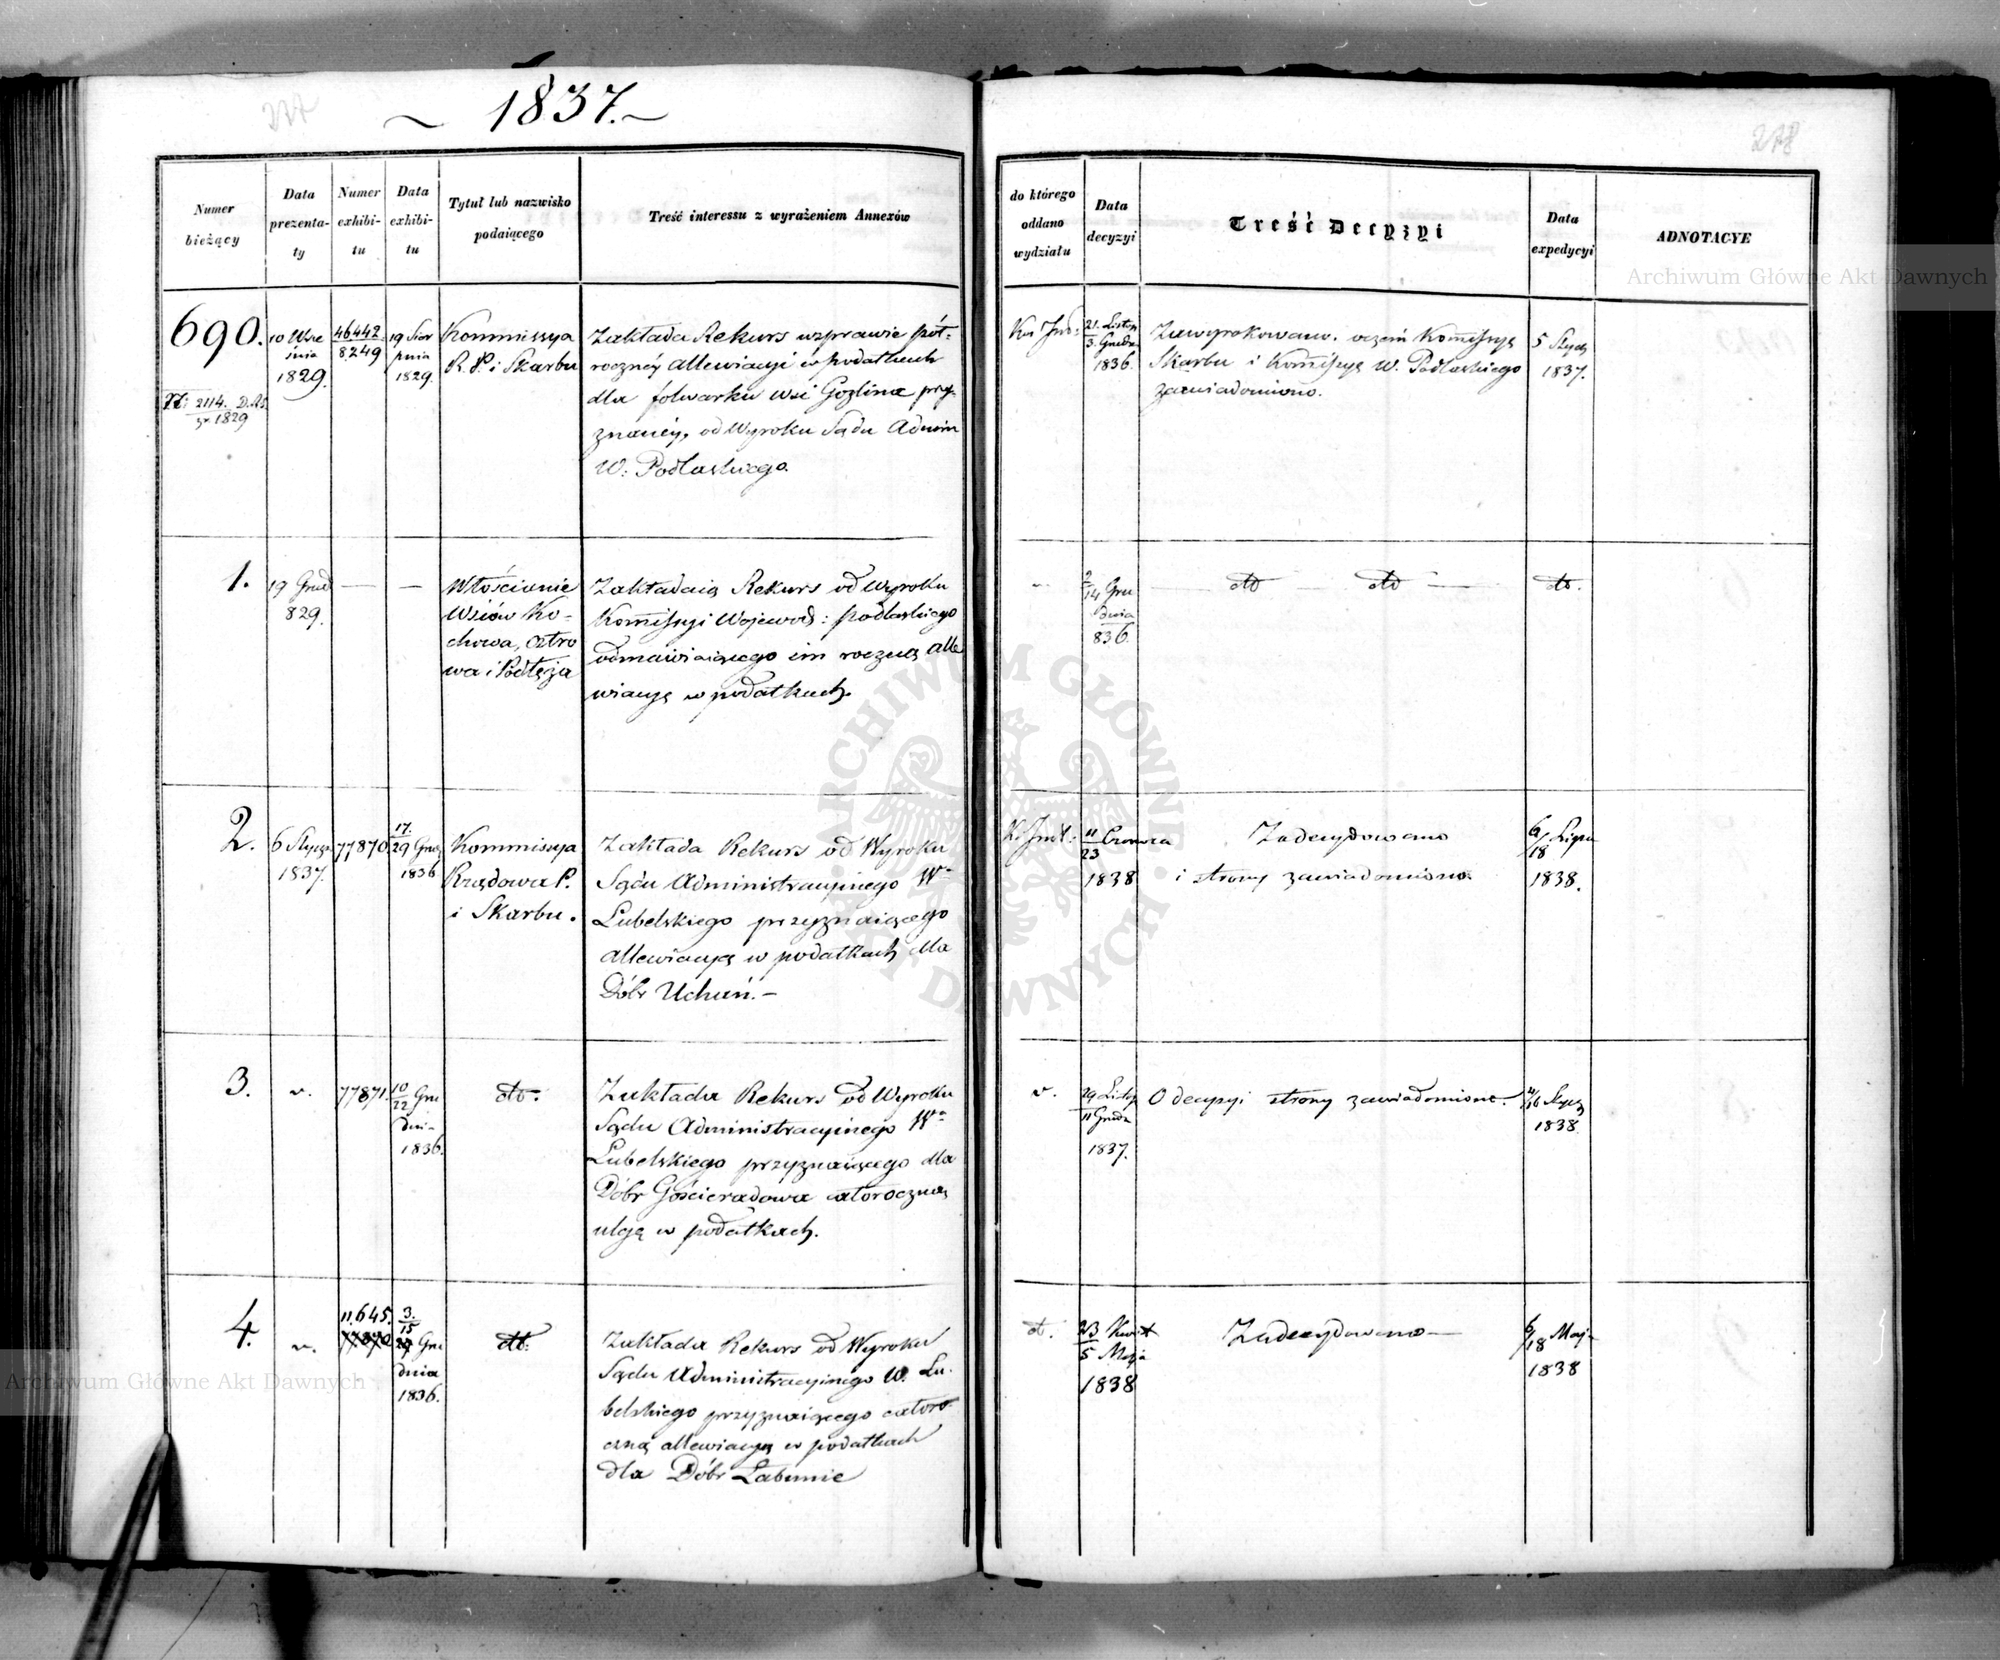 227
~ 1837. ~
Numer
bieżący
Data
prezenta-
ty
Numer
exhibi-
tu
Data
exhibi-
tu
Tytuł lub nazwisko
podaiącego
Treść interessu z wyrażeniem Annexów
690.
10 Wrze
śnia
1829.
46442
8249
19 Sier
pnia
1829.
Kommissya
R. P. i Skarbu
Zakłada Rekurs wsprawie pół-
roczney allewiacyi w podatkach
dla folwarku wsi Gozlina przy-
znaney, od Wyroku Sądu Admin
W: Podlaskiego.
2114. D.
1829
1.
19 Grud
829.
— —
Włościanie
Wsiów Ko-
chowa, Ostro
wa i Podłęża
Zakładaią Rekurs od Wyroku
Kommissyi Wojewod: podlaskiego
odmawiaiącego im roczną alle
wiacyą w podatkach.
2.
6 Stycz.
1837.
77870.
17.
29 Grud
1836
Kommissya
Rządowa P.
i Skarbu.
Zakłada Rekurs od Wyroku
Sądu Administracyinego Wa
Lubelskiego przyznaiącego
allewiacyą w podatkach dla
Dóbr Uchań. —
3.
v.
77871.
10
22 Gru
dnia
1836.
dto.
Zakłada Rekurs od Wyroku
Sądu Administracyinego Wa
Lubelskiego przyznaiącego dla
Dóbr Gościeradowa całoroczną
ulgę w podatkach.
4.
v.
11.645.
77870
3.
15
29 Gru
dnia
1836.
dto.
Zakłada Rekurs od Wyroku
Sądu Administracyinego W. Lu-
belskiego przyznaiącego całoro
czną allewiacyą w podatkach
dla Dóbr Łabunie
278
do którego
oddano
wydziału
Data
decyzyi
Treść Decyzyi
Data
expedycyi
ADNOTACYE
21. Listop
3. Grudn
1836.
Zawyrokowano. oczem Kommissyą
Skarbu i Kommissyą W. Podlaskiego
zawiadomiono.
5 Stycz
1837.
2
14 Gru
dnia
836.
— dto — dto —
dto.
11
23
Czerwca
1838
Zadecydowano
i strony zawiadomiono
6
18
Lipca
1838.
v.
29 Listop
11 Grudn
1837.
O decyzyi strony zawiadomiono.
4/16 Stycz
1838.
dt.
23 Kwiet
5 Maja
1838
Zadecydowano —
6
18 Maja
1838
Archiwum Główne Akt Dawnych
Archiwum Główne Akt Dawnych
ARCHIWUM GŁÓWNE AKT DAWNYCH